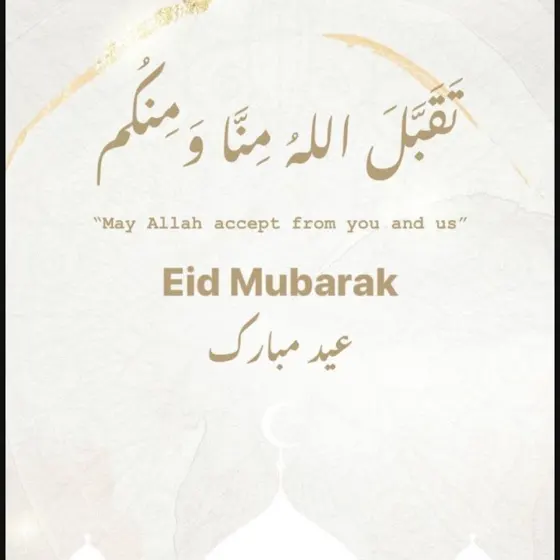 تَقَبَّلَ اللهُ مِنَّا وَمِنكُم
“May Allah accept from you and us”
Eid Mubarak
عيد مبارک